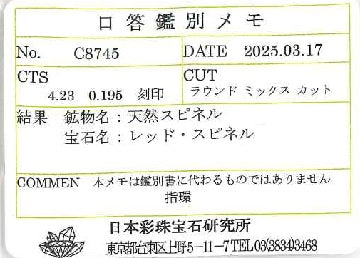 口答鑑別メモ
No. C8745 DATE 2025.03.17
CTS CUT
4.23 0.195 刻印 ラウンド ミックス カット
結果 鉱物名：天然スピネル
宝石名：レッド・スピネル
COMMEN 本メモは鑑別書に代わるものではありません
指環
日本彩珠宝石研究所
東京都台東区上野5-11-7TEL03(3834)3468